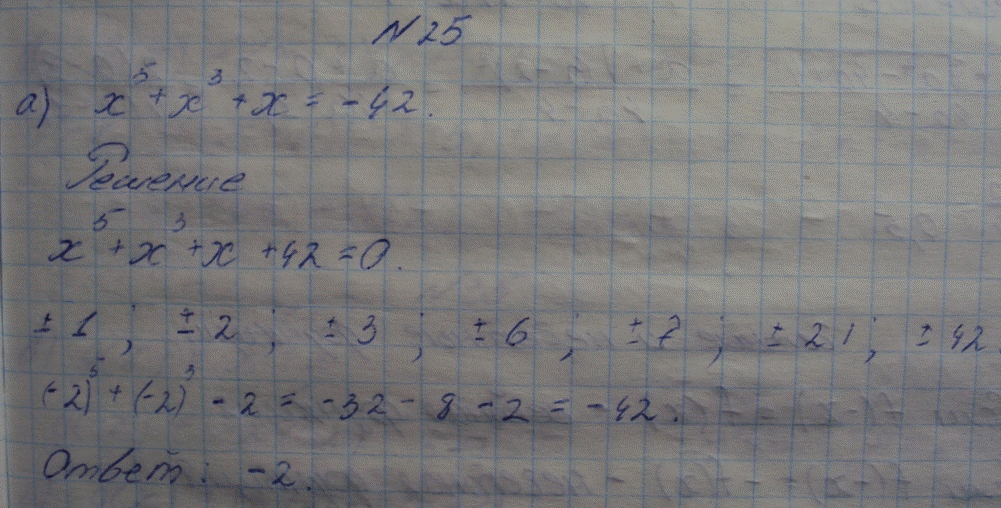 N 25
а) x⁵ + x³ + x = -42.
Решение
x⁵ + x³ + x + 42 = 0.
± 1 ; ± 2 ; ± 3 ; ± 6 ; ± 7 ; ± 21 ; ± 42.
(-2)⁵ + (-2)³ - 2 = -32 - 8 - 2 = -42.
Ответ: -2.